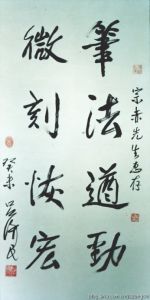 宗赤先生惠存
筆法遒勁
微刻恢宏
癸未 呂濟民